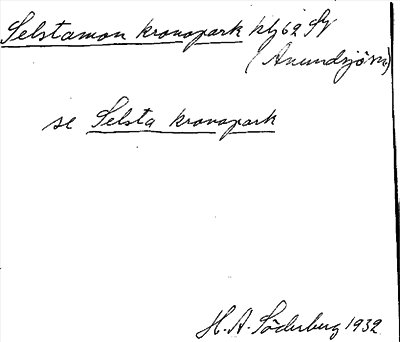 Selstamon kronopark klj 62 SV
(Anundsjö sn)
se Selsta kronopark
H. A. Söderberg 1932